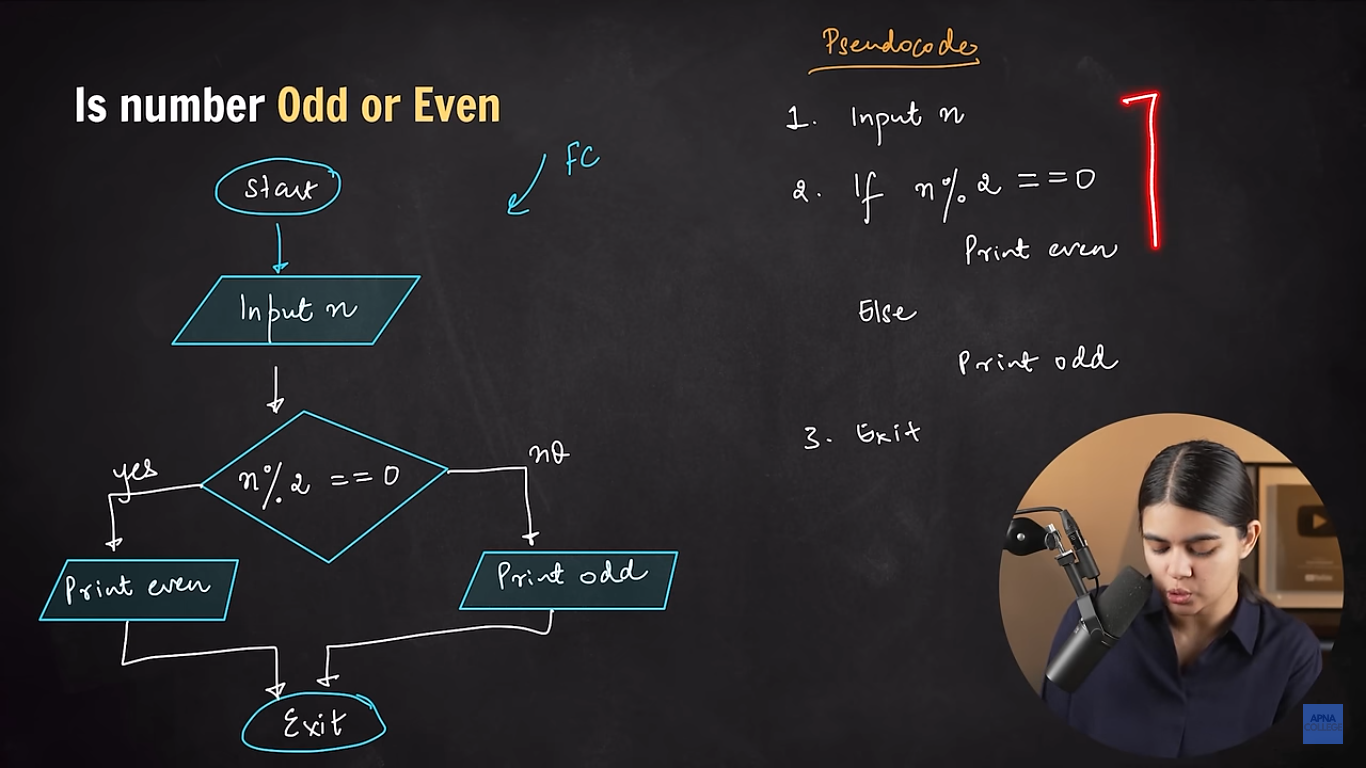 Is number Odd or Even
FC
Start
Input n
n%2 == 0
yes
no
Print even
Print odd
Exit
Pseudocode
1. Input n
2. If n%2 == 0
Print even
Else
Print odd
3. Exit
APNA
COLLEGE